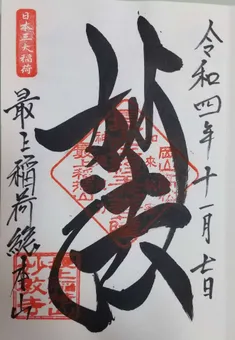 令和四年十一月七日
妙法
日本三大稲荷
最上稲荷総本山
妙教寺